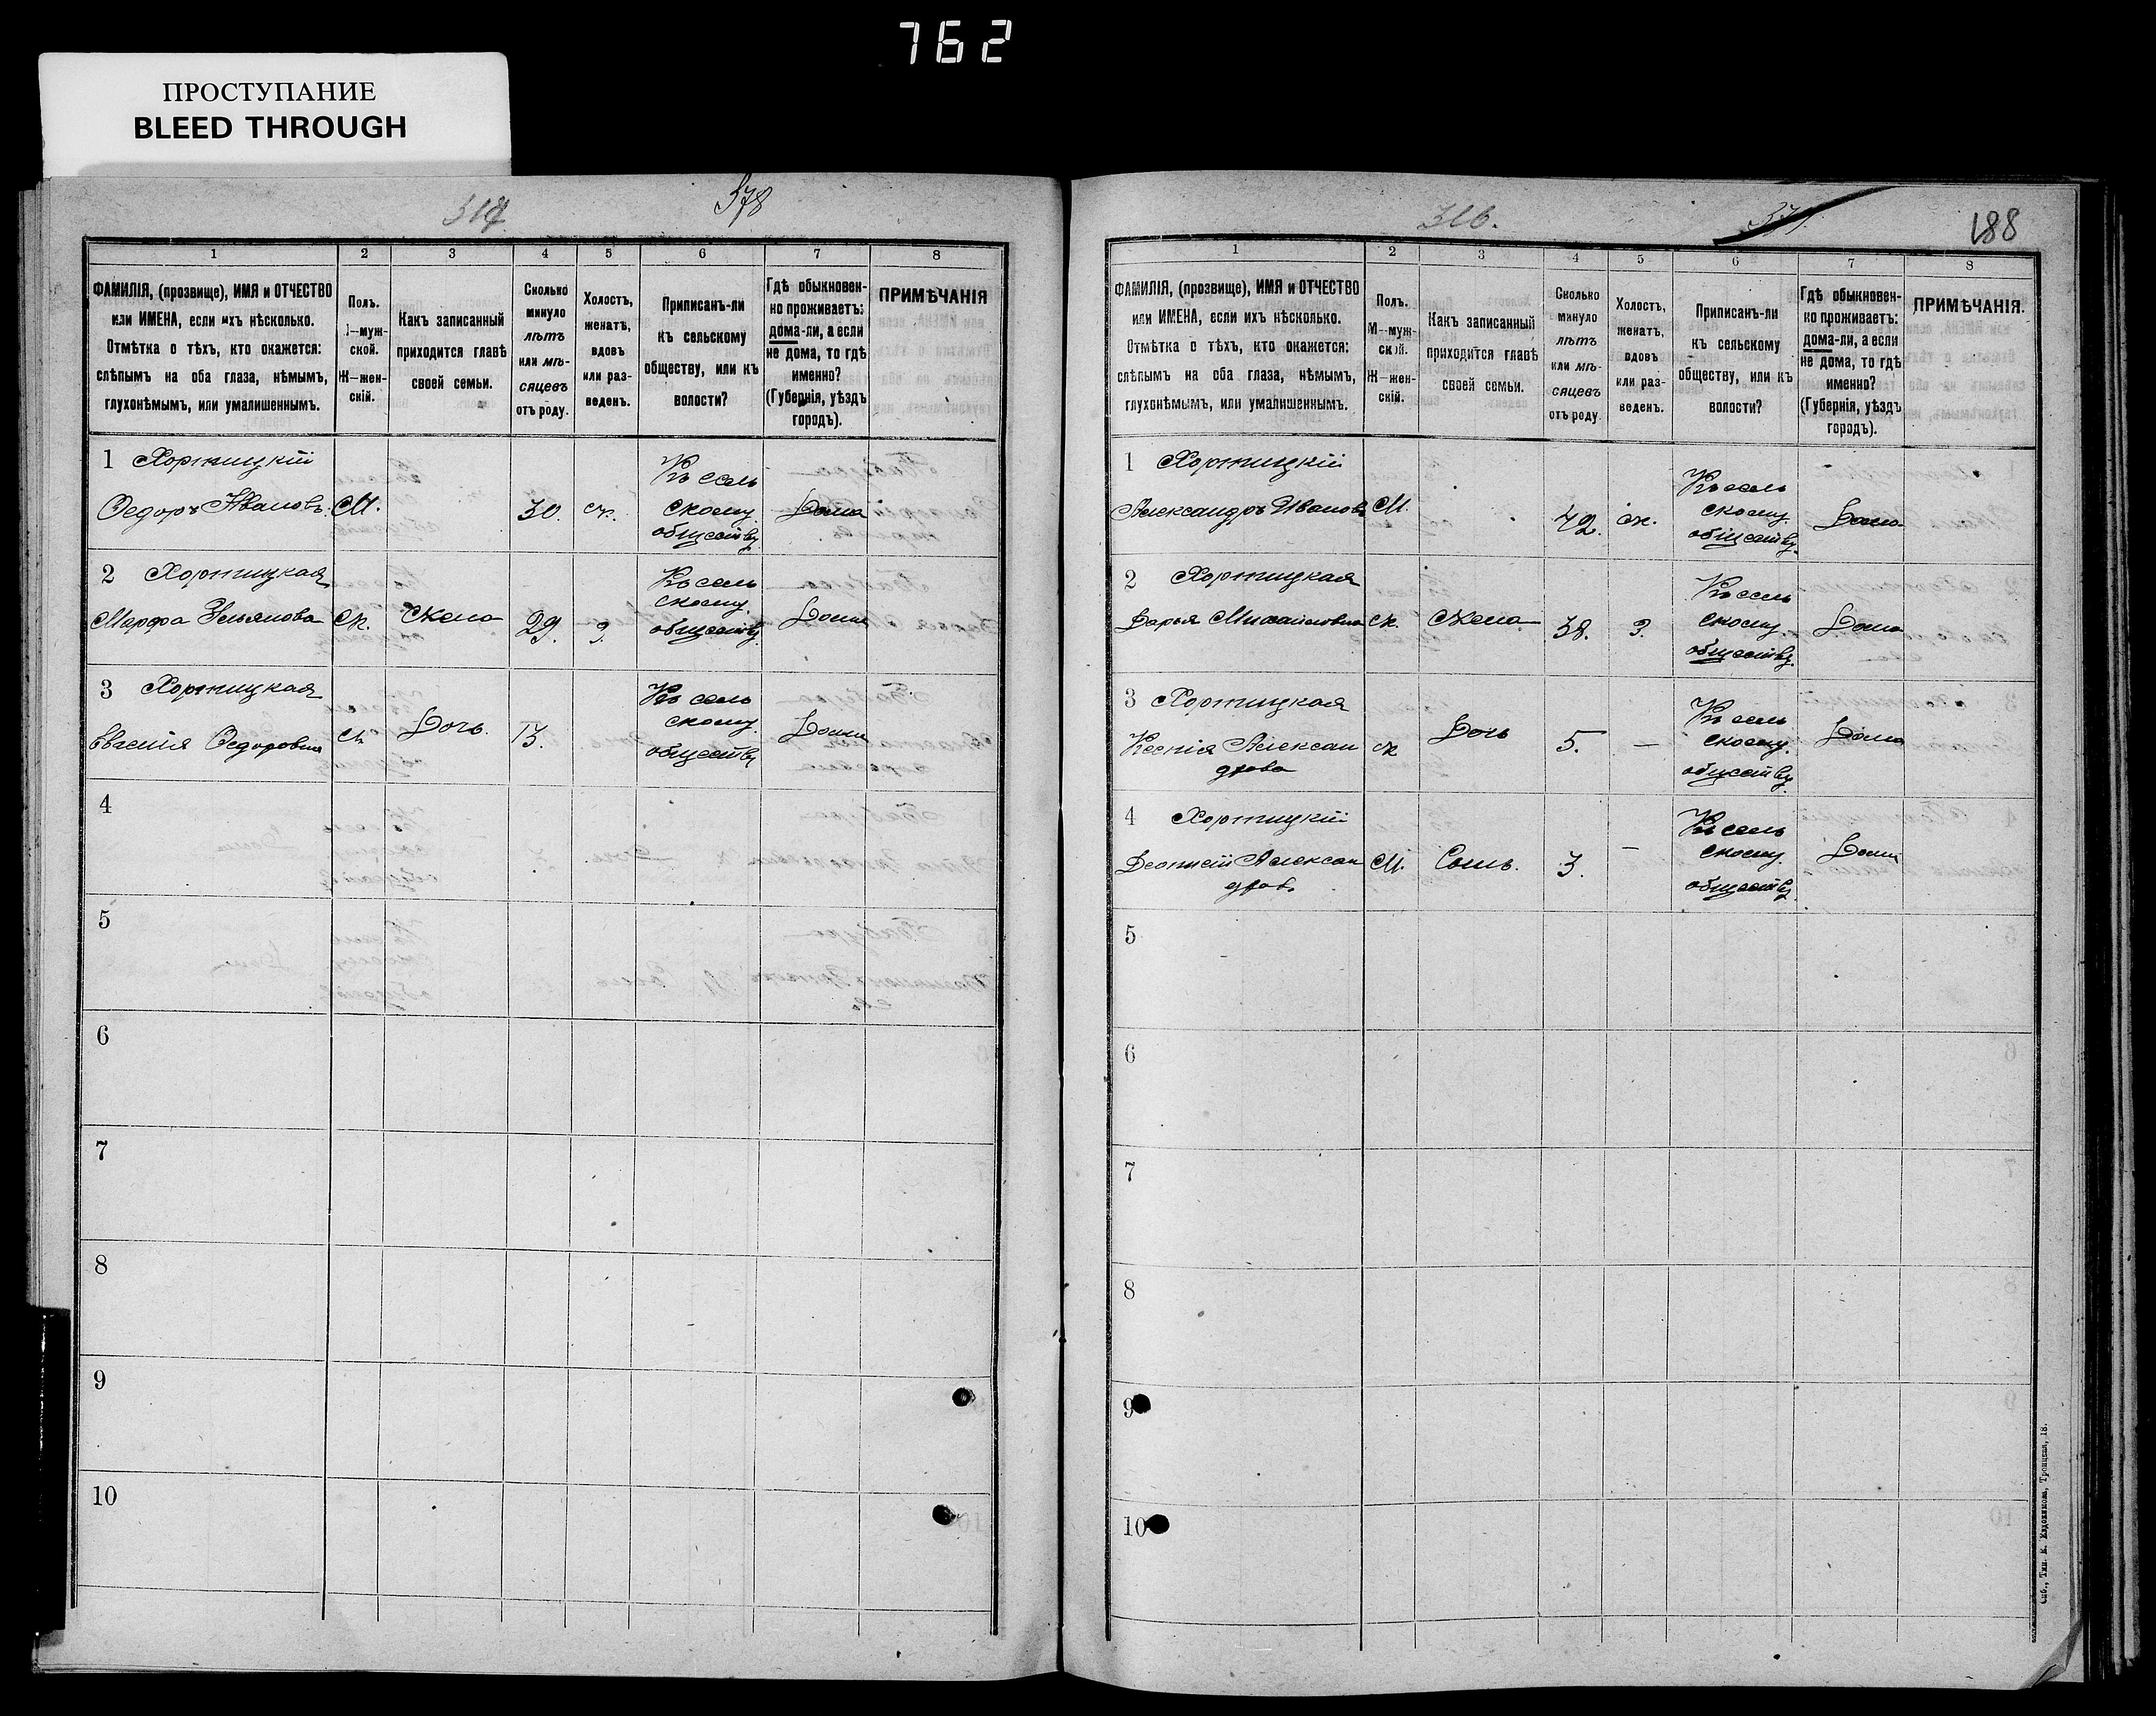 762
ПРОСТУПАНИЕ
BLEED THROUGH
378
1 2 3 4 5 6 7 8
ФАМИЛІЯ, (прозвище), ИМЯ и ОТЧЕСТВО
или ИМЕНА, если ихъ нѣсколько.
Отмѣтка о тѣхъ, кто окажется:
слѣпымъ на оба глаза, нѣмымъ,
глухонѣмымъ, или умалишеннымъ.
Полъ.
М—муж-
ской.
Ж—жен-
скій.
Какъ записанный
приходится главѣ
своей семьи.
Сколько
минуло
лѣтъ
или мѣ-
сяцевъ
отъ роду.
Холостъ,
женатъ,
вдовъ
или раз-
веденъ.
Приписанъ-ли
къ сельскому
обществу, или къ
волости?
Гдѣ обыкновен-
но проживаетъ:
дома-ли, а если
не дома, то гдѣ
именно?
(Губернія, уѣздъ
городъ).
ПРИМѢЧАНІЯ
1 Хортицкій
Ѳедоръ Ивановъ. М. 30. ж. Къ сель
скому
обществу Дома
2 Хортицкая
Марфа Ульянова Ж. Жена 29. З. Къ сель
скому
обществу Дома
3 Хортицкая
Ѳедоровна Ж Дочь. 13. Къ сель
скому
обществу Дома
4
5
6
7
8
9
10
316.
188
1 2 3 4 5 6 7 8
ФАМИЛІЯ, (прозвище), ИМЯ и ОТЧЕСТВО
или ИМЕНА, если ихъ нѣсколько.
Отмѣтка о тѣхъ, кто окажется:
слѣпымъ на оба глаза, нѣмымъ,
глухонѣмымъ, или умалишеннымъ.
Полъ.
М—муж-
ской.
Ж—жен-
скій.
Какъ записанный
приходится главѣ
своей семьи.
Сколько
минуло
лѣтъ
или мѣ-
сяцевъ
отъ роду
Холостъ,
женатъ,
вдовъ
или раз-
веденъ.
Приписанъ-ли
къ сельскому
обществу, или къ
волости?
Гдѣ обыкновен-
но проживаетъ:
дома-ли, а если
не дома, то гдѣ
именно?
(Губернія, уѣздъ
городъ).
ПРИМѢЧАНІЯ.
1 Хортицкій
Александръ Ивановъ М. 42. ж. Къ сель
скому
обществу. Дома
2 Хортицкая
Дарья Михайловна Ж. Жена 38. З. Къ сель
скому
обществу Дома
3 Хортицкая
Ксенія Алексан
дрова Ж Дочь 5. — Къ сель
скому
обществу Дома
4 Хортицкій
Леонтій Алексан
дровъ М. Сынъ. 3. — Къ сель
скому
обществу Дома
5
6
7
8
9
10
Спб., Тип. Е. Евдокимова, Троицкая, 18.